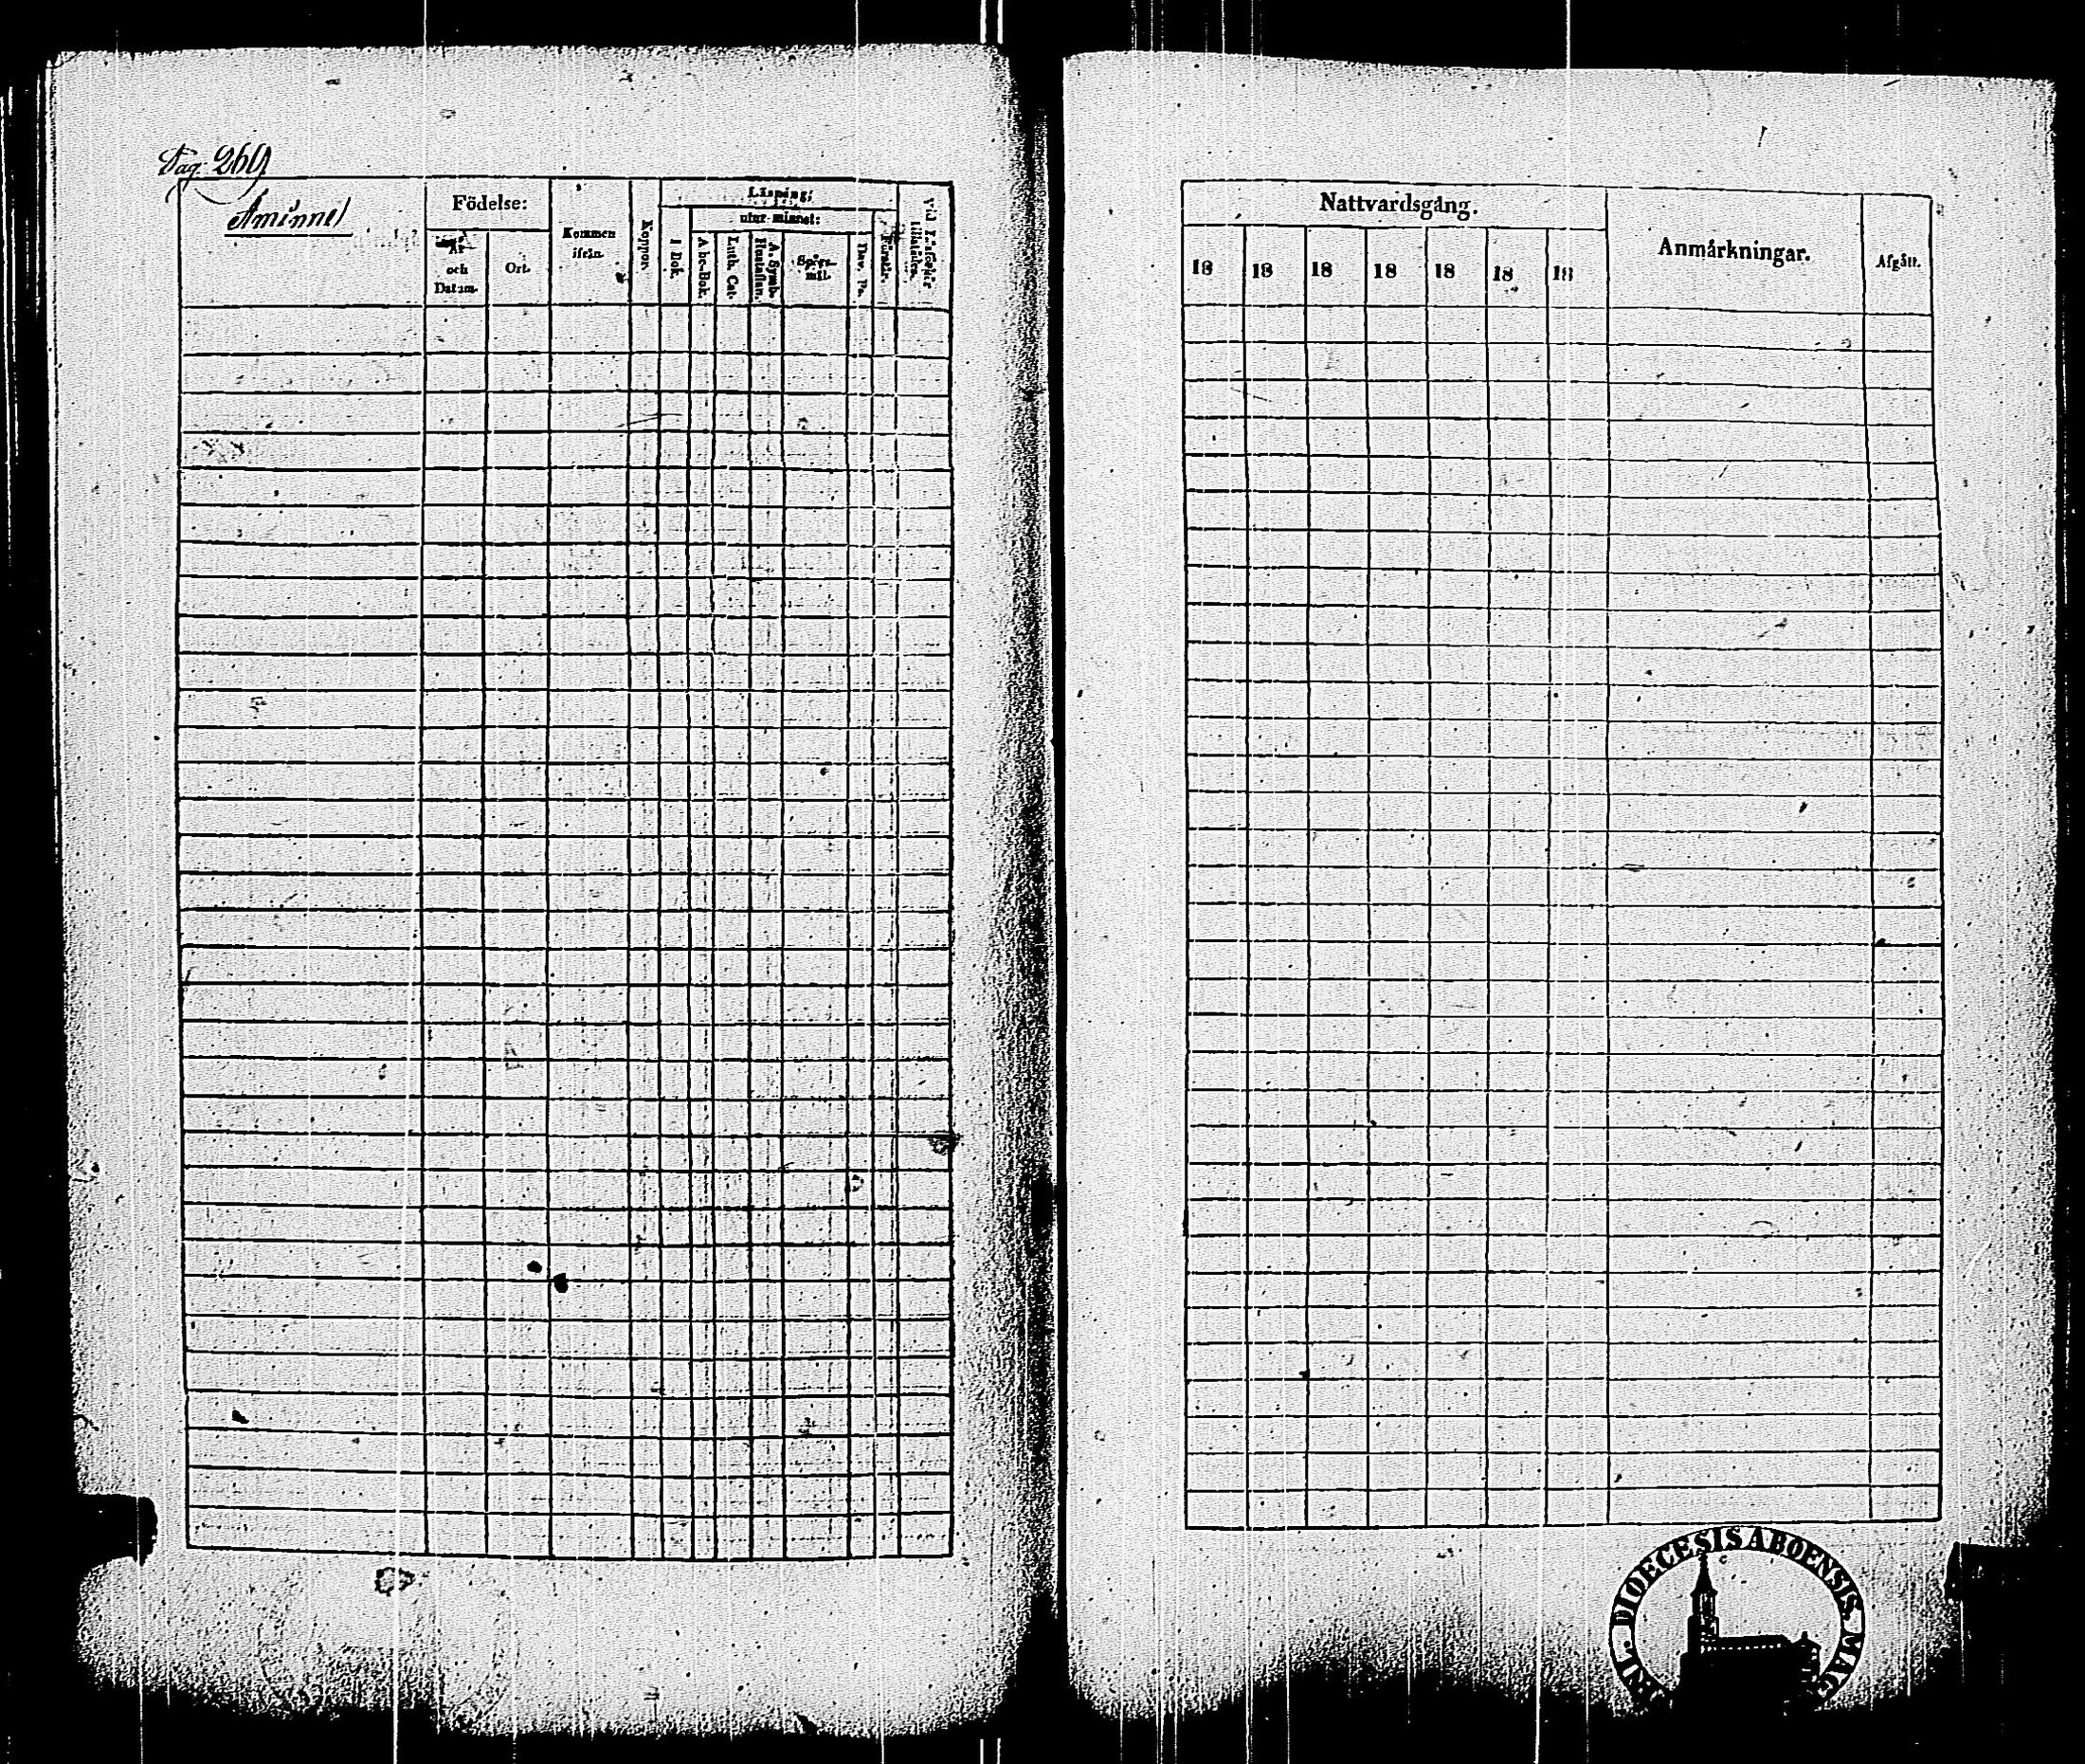 Pag. 269
Åminne
Födelse:
År och Datum.
Ort.
Kommen ifrån.
Koppor.
Läsning:
I Bok.
utur minnet:
Abc-Bok.
Luth. Cat.
A. Symb. Hustaflan.
Spörs-mål.
Dav. Ps.
Förstår.
Vid Läsförhör tillstädes.
Nattvardsgång.
18 18 18 18 18 18 18
Anmärkningar.
Afgått.
DIOECESIS ABOENSIS. MAG